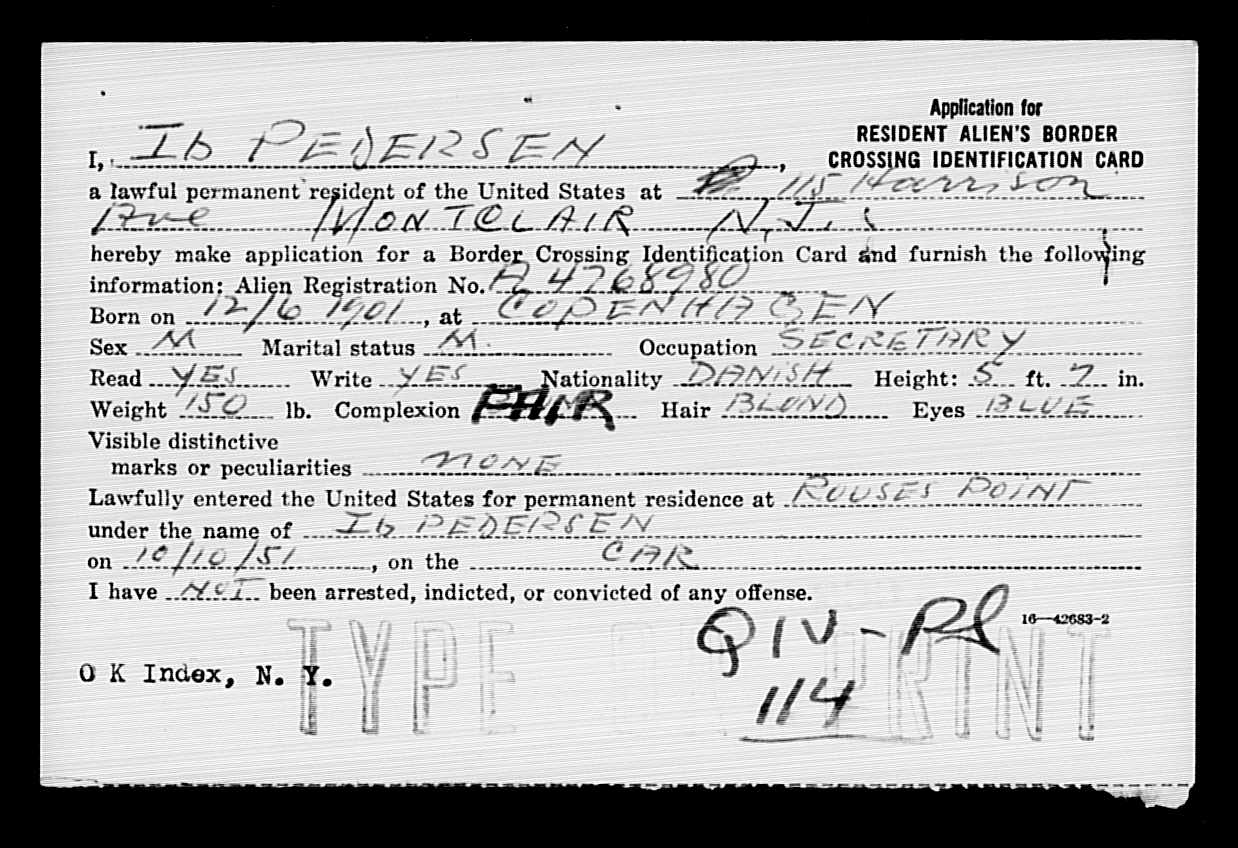 Application for
RESIDENT ALIEN'S BORDER
CROSSING IDENTIFICATION CARD
I, Ib PEDERSEN,
a lawful permanent resident of the United States at 115 Harrison
Ave MONTCLAIR N.J.
hereby make application for a Border Crossing Identification Card and furnish the following
information: Alien Registration No. A 4768980
Born on 12/6 1901, at COPENHAGEN
Sex M Marital status M. Occupation SECRETARY
Read YES Write YES Nationality DANISH Height: 5 ft. 7 in.
Weight 150 lb. Complexion FAIR Hair BLOND Eyes BLUE
Visible distinctive
marks or peculiarities NONE
Lawfully entered the United States for permanent residence at ROUSES POINT
under the name of Ib PEDERSEN
on 10/10/51, on the CAR
I have NOT been arrested, indicted, or convicted of any offense.
16—42683-2
TYPE OR PRINT
O K Index, N. Y.
114